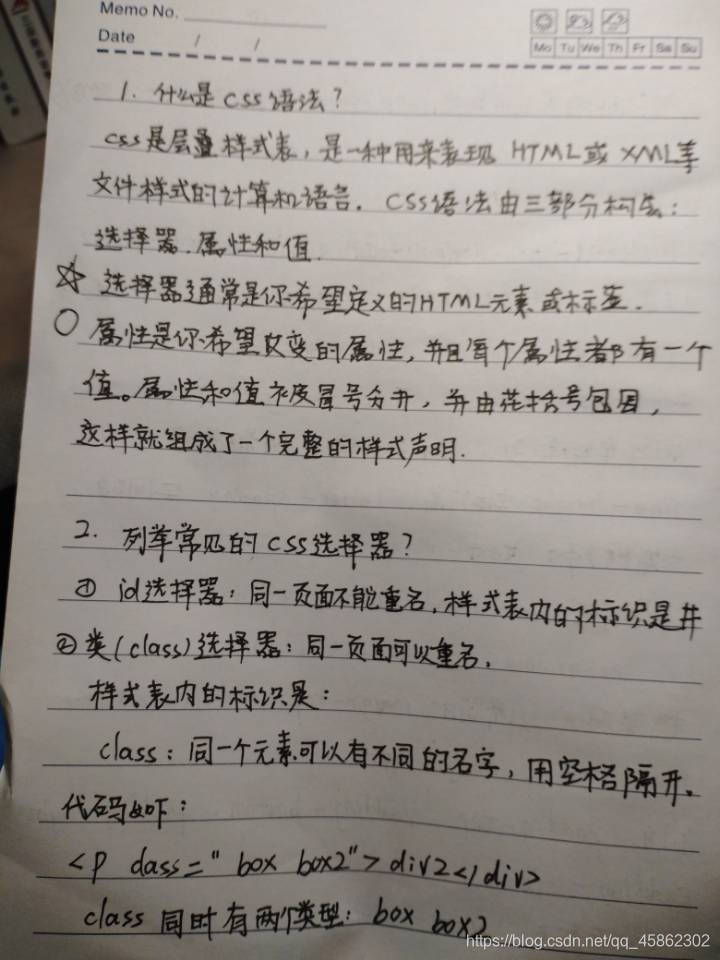 Memo No.
Date / /
Mo Tu We Th Fr Sa Su
1. 什么是css语法?
css是层叠样式表,是一种用来表现 HTML或 XML等
文件样式的计算机语言. CSS语法由三部分构成:
选择器.属性和值.
☆ 选择器通常是你希望定义的HTML元素或标签.
○ 属性是你希望改变的属性,并且每个属性都有一个
值。属性和值被冒号分开,并由花括号包围,
这样就组成了一个完整的样式声明.
2. 列举常见的css选择器?
① id选择器:同一页面不能重名,样式表内的标识是#
②类(class)选择器:同一页面可以重名.
样式表内的标识是:
class:同一个元素可以有不同的名字,用空格隔开。
代码如下:
<p class="box box2">div2</div>
class 同时有两个类型: box box2
https://blog.csdn.net/qq_45862302